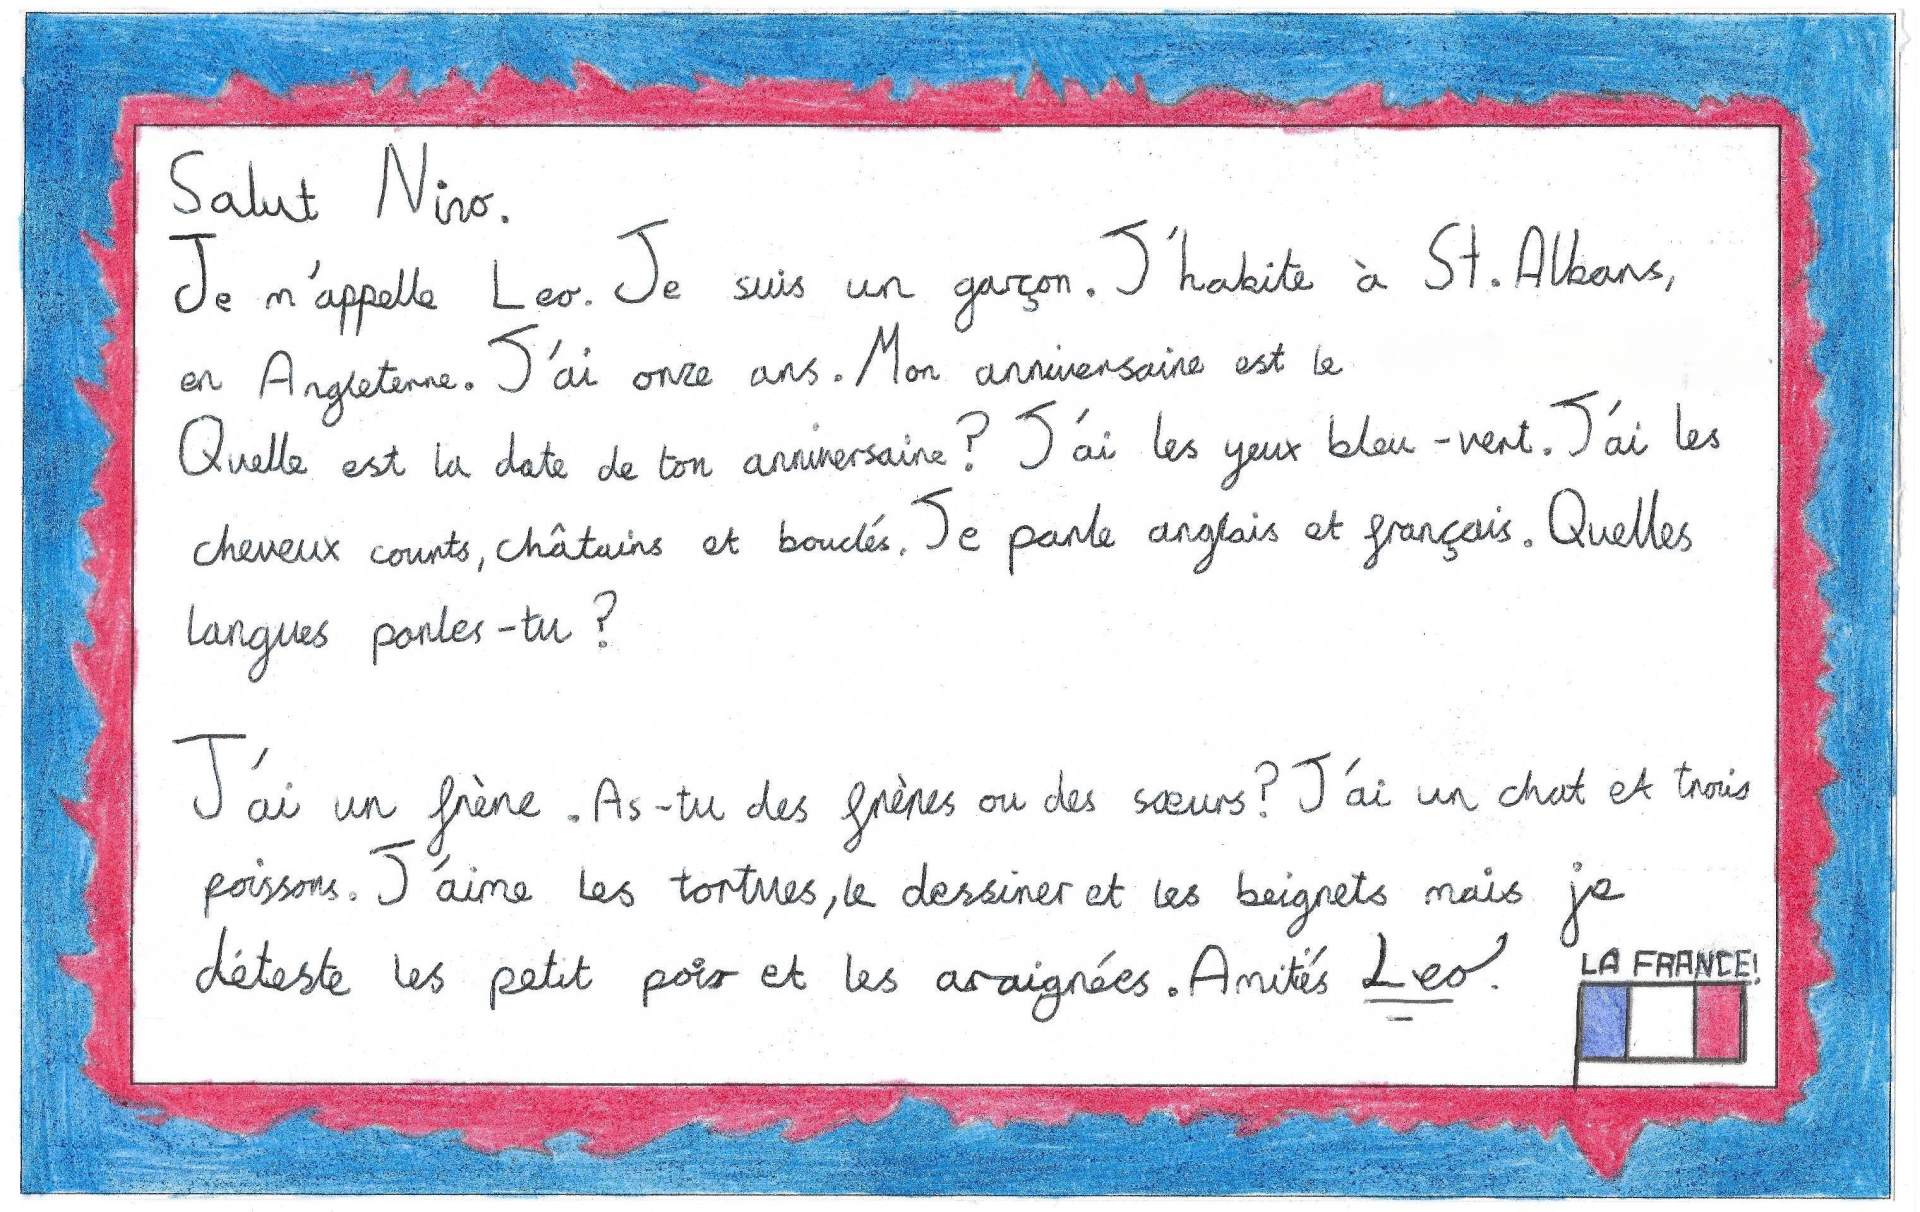 Salut Nino.
Je m'appelle Leo. Je suis un garçon. J'habite à St. Albans,
en Angleterre. J'ai onze ans. Mon anniversaire est le
Quelle est la date de ton anniversaire? J'ai les yeux bleu-vert. J'ai les
cheveux courts, châtains et bouclés. Je parle anglais et français. Quelles
langues parles-tu?
J'ai un frère. As-tu des frères ou des sœurs? J'ai un chat et trois
poissons. J'aime les tortues, le dessiner et les beignets mais je
déteste les petit pois et les araignées. Amités Leo.
LA FRANCE!